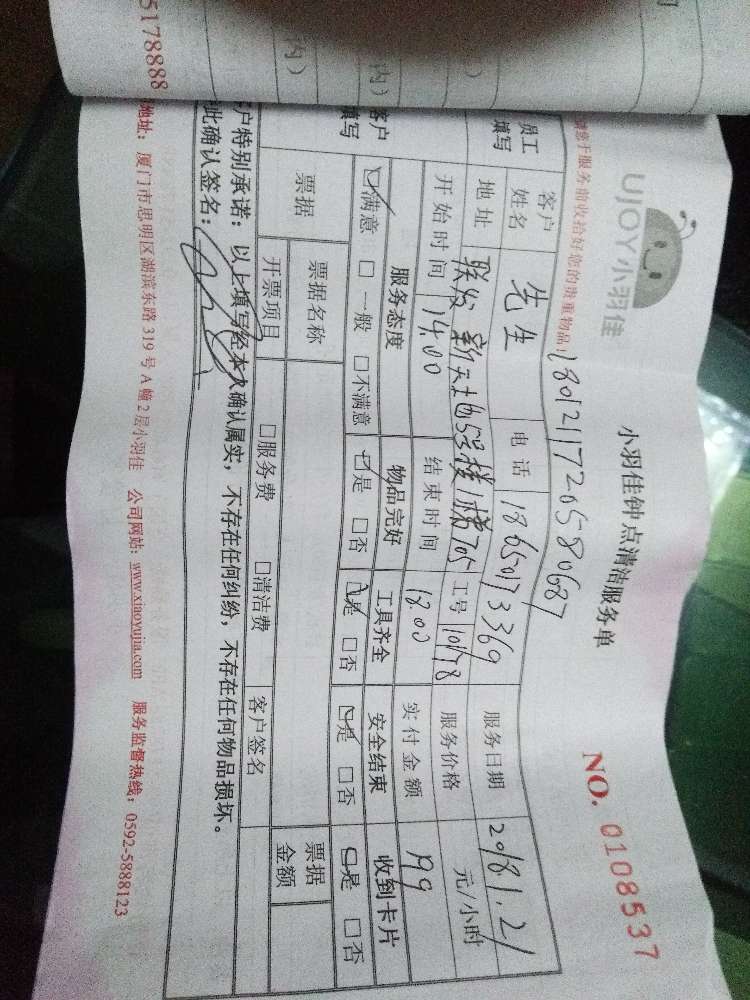 5178888
内）
内）
UJOY小羽佳
小羽佳钟点清洁服务单
NO. 0108537
请您于服务前收拾好您的贵重物品！
1801211726580687
员工填写
客户姓名 先生 电话 18650173369 服务日期 2018.1.21
地址 联发新天地53号楼1梯705 工号 10178 服务价格 元/小时
开始时间 14.00 结束时间 18.00 实付金额 199
客户填写
服务态度 物品完好 工具齐全 安全结束 收到卡片
☑满意 □一般 □不满意 ☑是 □否 ☑是 □否 ☑是 □否 ☑是 □否
票据 票据名称 票据金额
开票项目 □服务费 □清洁费 客户签名
户特别承诺：以上填写经本人确认属实，不存在任何纠纷，不存在任何物品损坏。
此确认签名：
地址：厦门市思明区湖滨东路319号A幢2层小羽佳 公司网站：www.xiaoyujia.com 服务监督热线：0592-5888123